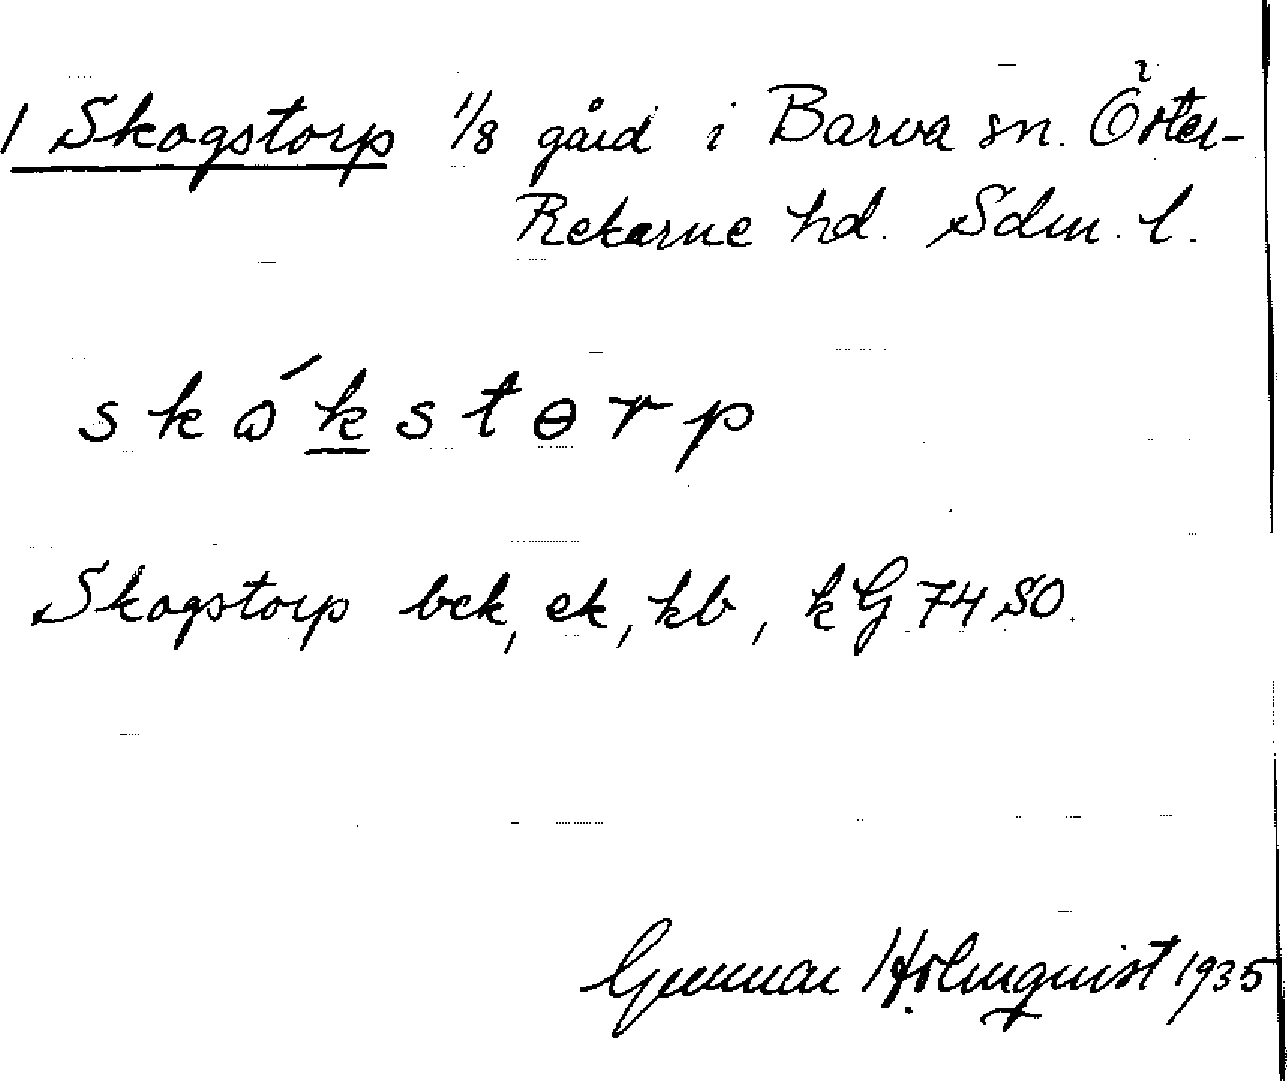 1 Skogstorp 1/8 gård i Barva sn. Öster-
Rekarne hd. Sdm. l.
skɷ́kstɵrp
Skogstorp bek, ek, kb, kG 74 SO.
Gunnar Holmquist 1935